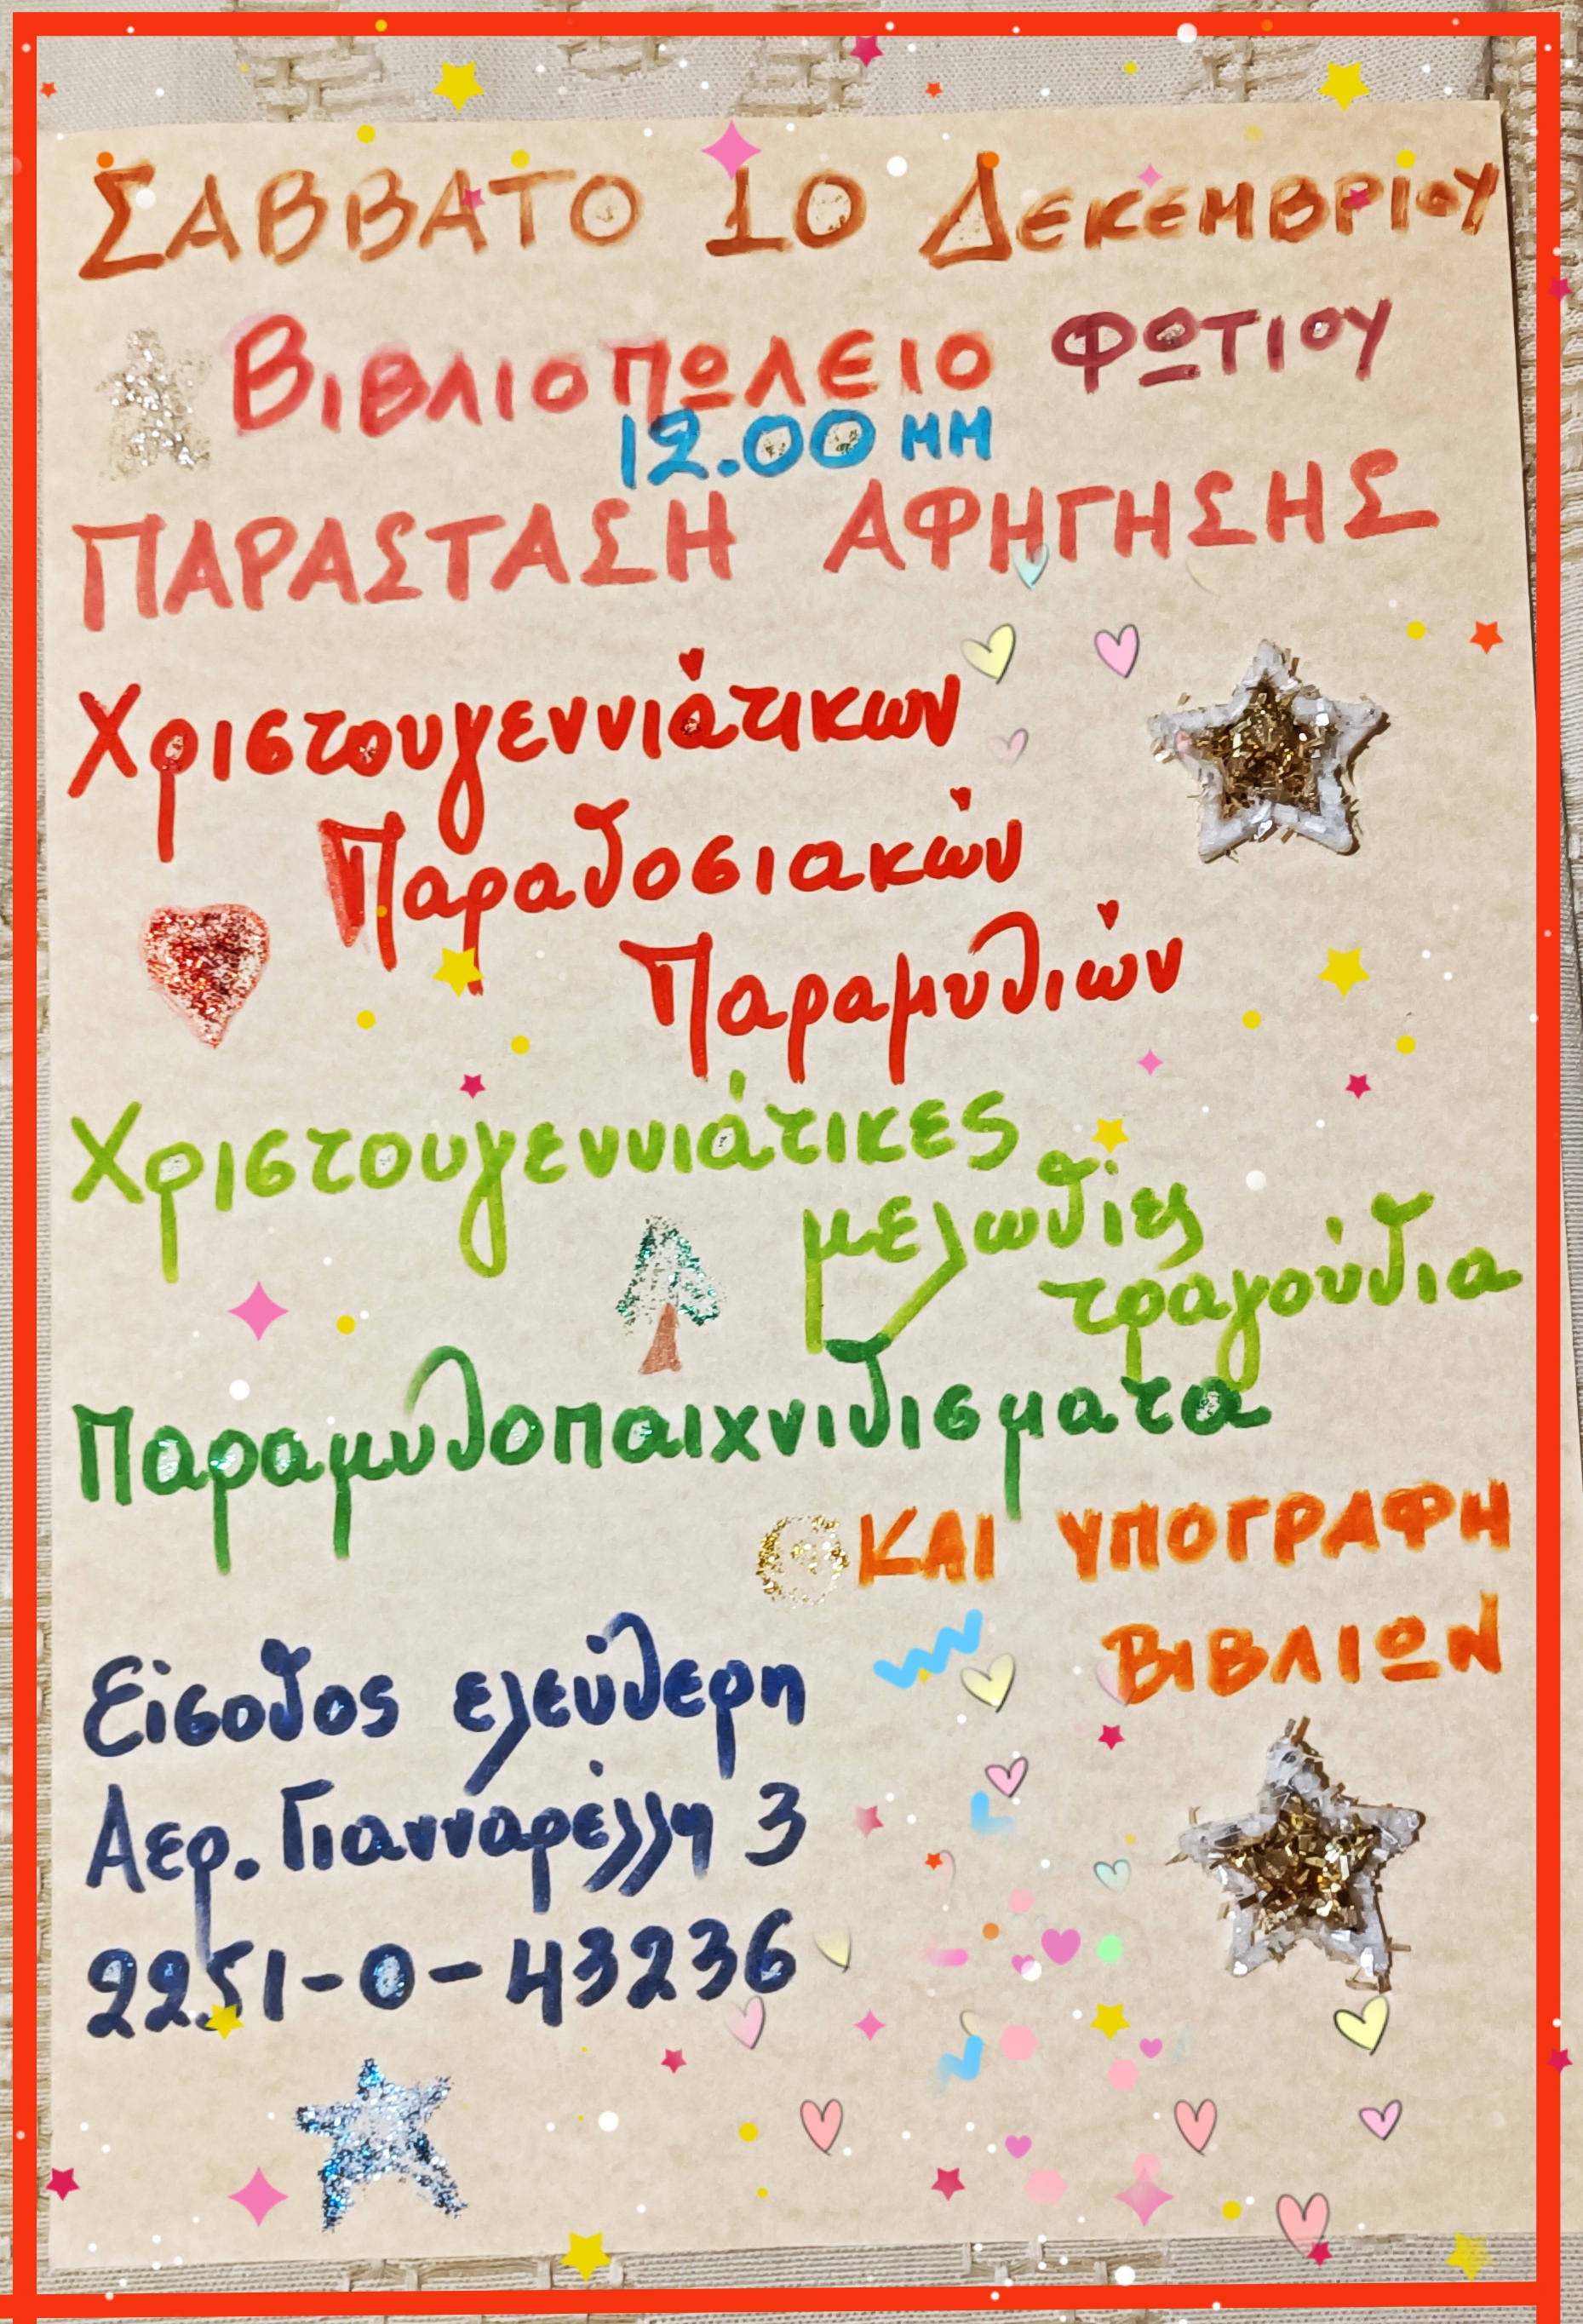 ΣΑΒΒΑΤΟ 10 ΔΕΚΕΜΒΡΙΟΥ
ΒΙΒΛΙΟΠΩΛΕΙΟ ΦΩΤΙΟΥ
12.00 ΜΜ
ΠΑΡΑΣΤΑΣΗ ΑΦΗΓΗΣΗΣ
Χριστουγεννιάτικων
Παραδοσιακών
Παραμυθιών
Χριστουγεννιάτικες
μελωδίες
τραγούδια
Παραμυθοπαιχνιδισματα
ΚΑΙ ΥΠΟΓΡΑΦΗ
ΒΙΒΛΙΩΝ
Είσοδος ελεύθερη
Αερ. Γιανναρέλλη 3
2251-0-43236